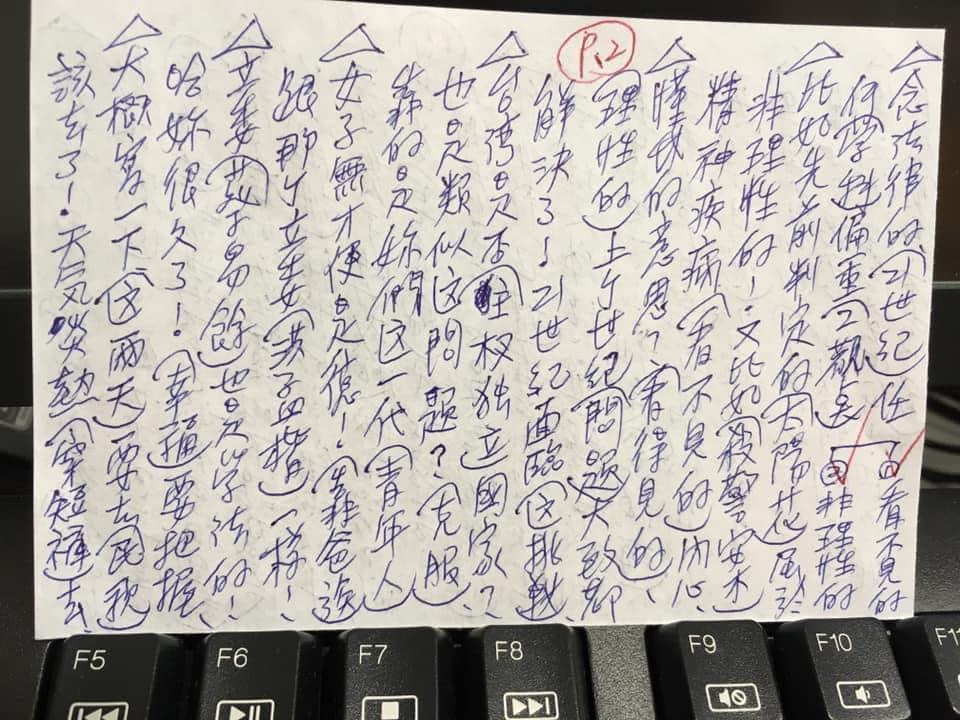 P.12
△念法律的(21世紀)任 ①看不見的
何學科偏重(2觀点) ②非理性的
△比如先前判定的(太陽花)屬於
非理性的!又比如(殺警案)
精神疾病(看不見的)內心、
△懂我的意思?(看得見的)、
(理性的)上个世紀(問題)大致都
解決了!21世紀面臨(这挑戰)
△台灣是否(主权独立國家)?
也是類似这問題?(克服
靠的是妳們这一代(青年人)
△女子無才便是德!(靠爸
跟那个立委(洪孟楷)一樣!
△立委 易餘)也是学法的!
哈妳很久了!(幸福)要把握
△大概寫一下(这兩天)要去
該去了!天気炎熱(穿短褲)去、
F5
F6
F7
F8
F9
F10
F11